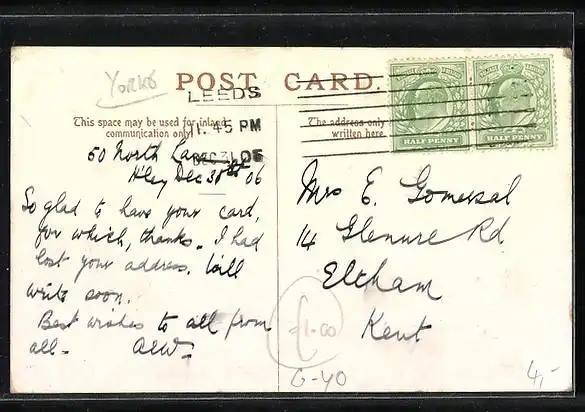 Yorks
POST CARD.
LEEDS
1.45 PM
DEC 31 06
HALF PENNY HALF PENNY
This space may be used for inland
communication only
The address only
written here.
50 North
Dec 31st 06
So glad to have your card,
for which, thanks. I had
lost your address. Will
write soon.
Best wishes to all from
all. AEW.
Mrs E. Gomersal
14 Glenure Rd
Eltham
Kent
£1-00
G-40
4,-